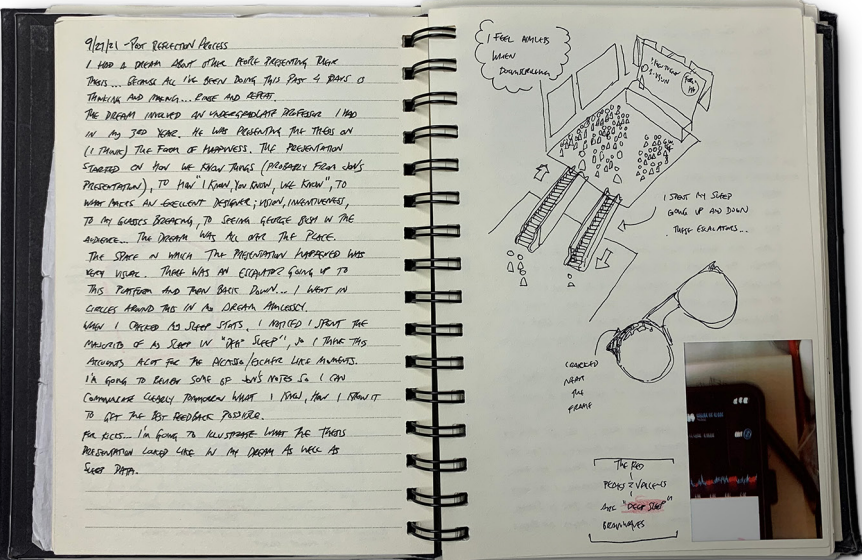 9/27/21 - POST REFLECTION PROCESS
I HAD A DREAM ABOUT OTHER PEOPLE PRESENTING THEIR
THESIS... BECAUSE ALL I'VE BEEN DOING THIS PAST 4 DAYS IS
THINKING AND MAKING... RINSE AND REPEAT.
THE DREAM INVOLVED AN UNDERGRADUATE PROFESSOR I HAD
IN MY 3RD YEAR. HE WAS PRESENTING THE THESIS ON
(I THINK) THE FORM OF HAPPINESS. THE PRESENTATION
STARTED ON HOW WE KNOW THINGS (PROBABLY FROM JON'S
PRESENTATION), TO HOW "I KNOW, YOU KNOW, WE KNOW", TO
WHAT MAKES AN EXCELLENT DESIGNER; VISION, INVENTIVENESS,
TO MY GLASSES BREAKING, TO SEEING GEORGE BUSH IN THE
AUDIENCE... THE DREAM WAS ALL OVER THE PLACE.
THE SPACE IN WHICH THE PRESENTATION HAPPENED WAS
VERY VISUAL. THERE WAS AN ESCALATOR GOING UP TO
THIS PLATFORM AND THEN BACK DOWN... I WENT IN
CIRCLES AROUND THIS IN MY DREAM AIMLESSLY.
WHEN I CHECKED MY SLEEP STATS, I NOTICED I SPENT THE
MAJORITY OF MY SLEEP IN "DEEP SLEEP", SO I THINK THIS
ACCOUNTS A LOT FOR THE PICASSO/ESCHER LIKE MOMENTS.
I'M GOING TO REVIEW SOME OF JON'S NOTES SO I CAN
COMMUNICATE CLEARLY TOMORROW WHAT I KNEW, HOW I KNEW IT
TO GET THE BEST FEEDBACK POSSIBLE.
FOR KICKS... I'M GOING TO ILLUSTRATE WHAT THE THESIS
PRESENTATION LOOKED LIKE IN MY DREAM AS WELL AS
SLEEP DATA.
I FEEL AIMLESS
WHEN
DOOMSCROLLING
I SPENT MY SLEEP
GOING UP AND DOWN
THESE ESCALATORS...
CRACKED
NEAR
THE
FRAME
THE RED
PEAKS & VALLEYS
ARE "DEEP SLEEP"
BRAINWAVES